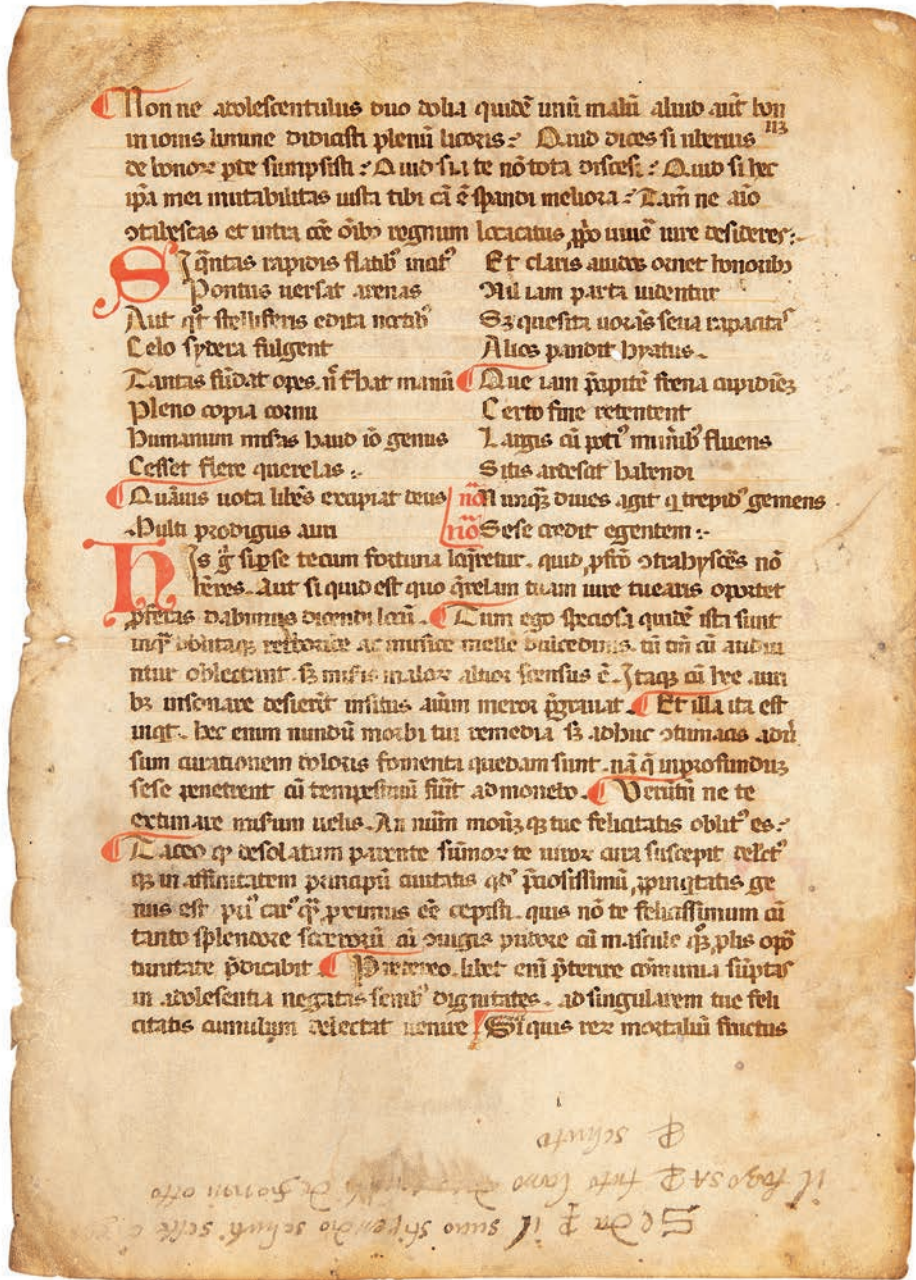 Non ne adolescentulus duo dolia quidē unū malū aliud aūt bon
in iouis limine didicisti plenū licoris? Quid dices si uberius
113
de bonoꝝ pte sumpsisti? Quid si a te nō tota discessi? Quid si hec
ip̄a mei mutabilitas iusta tibi cā ē spandi meliora? Tam̄ ne aīo
ↄtabescas et intra cōe oīb9 regnum locatus ꝓpo uiuē iure desideres:
Si q̄ntas rapidis flatib9 incit9
Pontus uersat arenas
Aut qͦt stelliferis edita noctib9
Celo sydera fulgent
Tantas fūdat opes n̄ t̄hat manū
Pleno copia cornu
Humanum misas haud iō genus
Cesset flere querelas:
Quāuis uota libēs excipiat deus
Multi prodigus auri
Et claris auidos ornet honorib9
Nil iam parta uidentur
Sꝫ quesita uorās seua rapacitas
Alios pandit hyatus.
Que iam p̄cipitē frena cupidinē
Certo fine retentent
Largis cū poti9 munīb9 fluens
Sitis ardescit habendi
Nunqꝫ diues agit q trepid9 gemens
Sese credit egentem:
His g̊ si ꝓ se tecum fortuna loq̄retur. quid ꝓfcō ↄtrahyscēs nō
hēres. Aut si quid est quo q̄relam tuam iure tuearis oportet
ꝓferas dabimus dicendi locū. Tum ego speciosa quidē ista sunt
inq̄ oblitaqꝫ rethorice ac musice melle dulcedinis. tū tm̄ cū audiu
ntur oblectant. sꝫ miſis maloꝝ altior sensus ē. Itaqꝫ cū hec auri
bꝫ insonare desierīt insitus aīum meror p̄grauat. Et illa ita est
inqt. hec enim nundū morbi tui remedia sꝫ adhuc ↄtumacis adu
sum curationem doloris fomenta quedam sunt. nā q̄ in profundū
sese penetrent cū tempestiuū fuīt admouebo. Verūtn̄ ne te
extimare misum uelis. An num̄ modūqꝫ tue felicitatis oblit9 es?
Taceo qꝫ desolatum parente sūmoꝝ te uiroꝝ cura suscepit delect9
qꝫ in affinitatem principū ciuitatis qd̄ p̄ciosissimū ꝓpinqtatis ge
nus est pri9 car9 qꝫ proximus eē cepisti. quis nō te felicissimum cū
tanto splendore soceroꝝ cū ↄiugis pudore cū mascule qꝫ ꝓlis opor
tunitate p̄dicabit. Pretereo. libet enī p̄terire cōmunia sūptas
in adolescentia negatas senib9 dignitates. ad singularem tue feli
citatis cumulum delectat uenire Si quis reꝝ mortaliū fructus